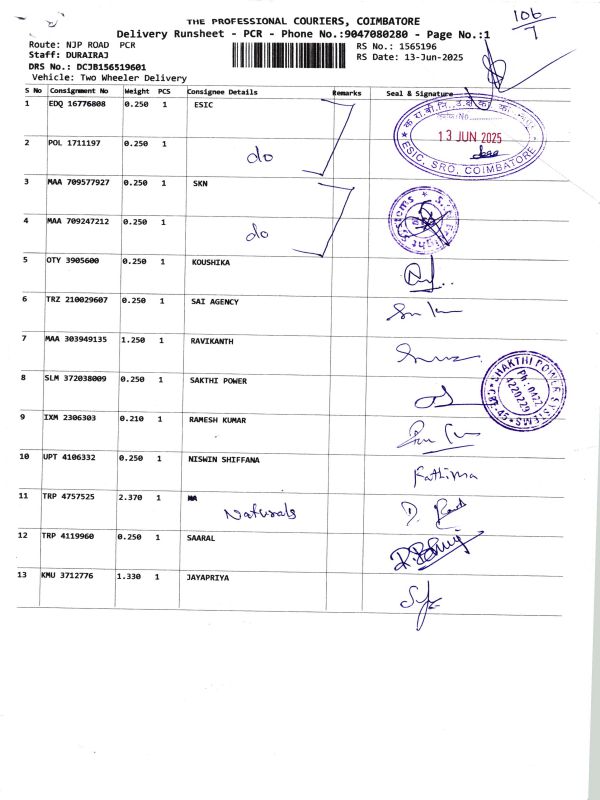 THE PROFESSIONAL COURIERS, COIMBATORE
106
7
Delivery Runsheet - PCR - Phone No.:9047080280 - Page No.:1
Route: NJP ROAD PCR
RS No.: 1565196
Staff: DURAIRAJ
RS Date: 13-Jun-2025
DRS No.: DCJB156519601
Vehicle: Two Wheeler Delivery
S No Consignment No Weight PCS Consignee Details Remarks Seal & Signature
1 EDQ 16776808 0.250 1 ESIC
13 JUN 2025
ESIC, SRO, COIMBATORE
2 POL 1711197 0.250 1 do
3 MAA 709577927 0.250 1 SKN
4 MAA 709247212 0.250 1 do
5 OTY 3905600 0.250 1 KOUSHIKA
6 TRZ 210029607 0.250 1 SAI AGENCY
7 MAA 303949135 1.250 1 RAVIKANTH
8 SLM 372038009 0.250 1 SAKTHI POWER
SHAKTHI POWER SYSTEMS
CBE-45
PH: 0422
4220229
9 IXM 2306303 0.210 1 RAMESH KUMAR
10 UPT 4106332 0.250 1 NISWIN SHIFFANA Fathima
11 TRP 4757525 2.370 1 MA
Naturals
12 TRP 4119960 0.250 1 SAARAL
13 KMU 3712776 1.330 1 JAYAPRIYA